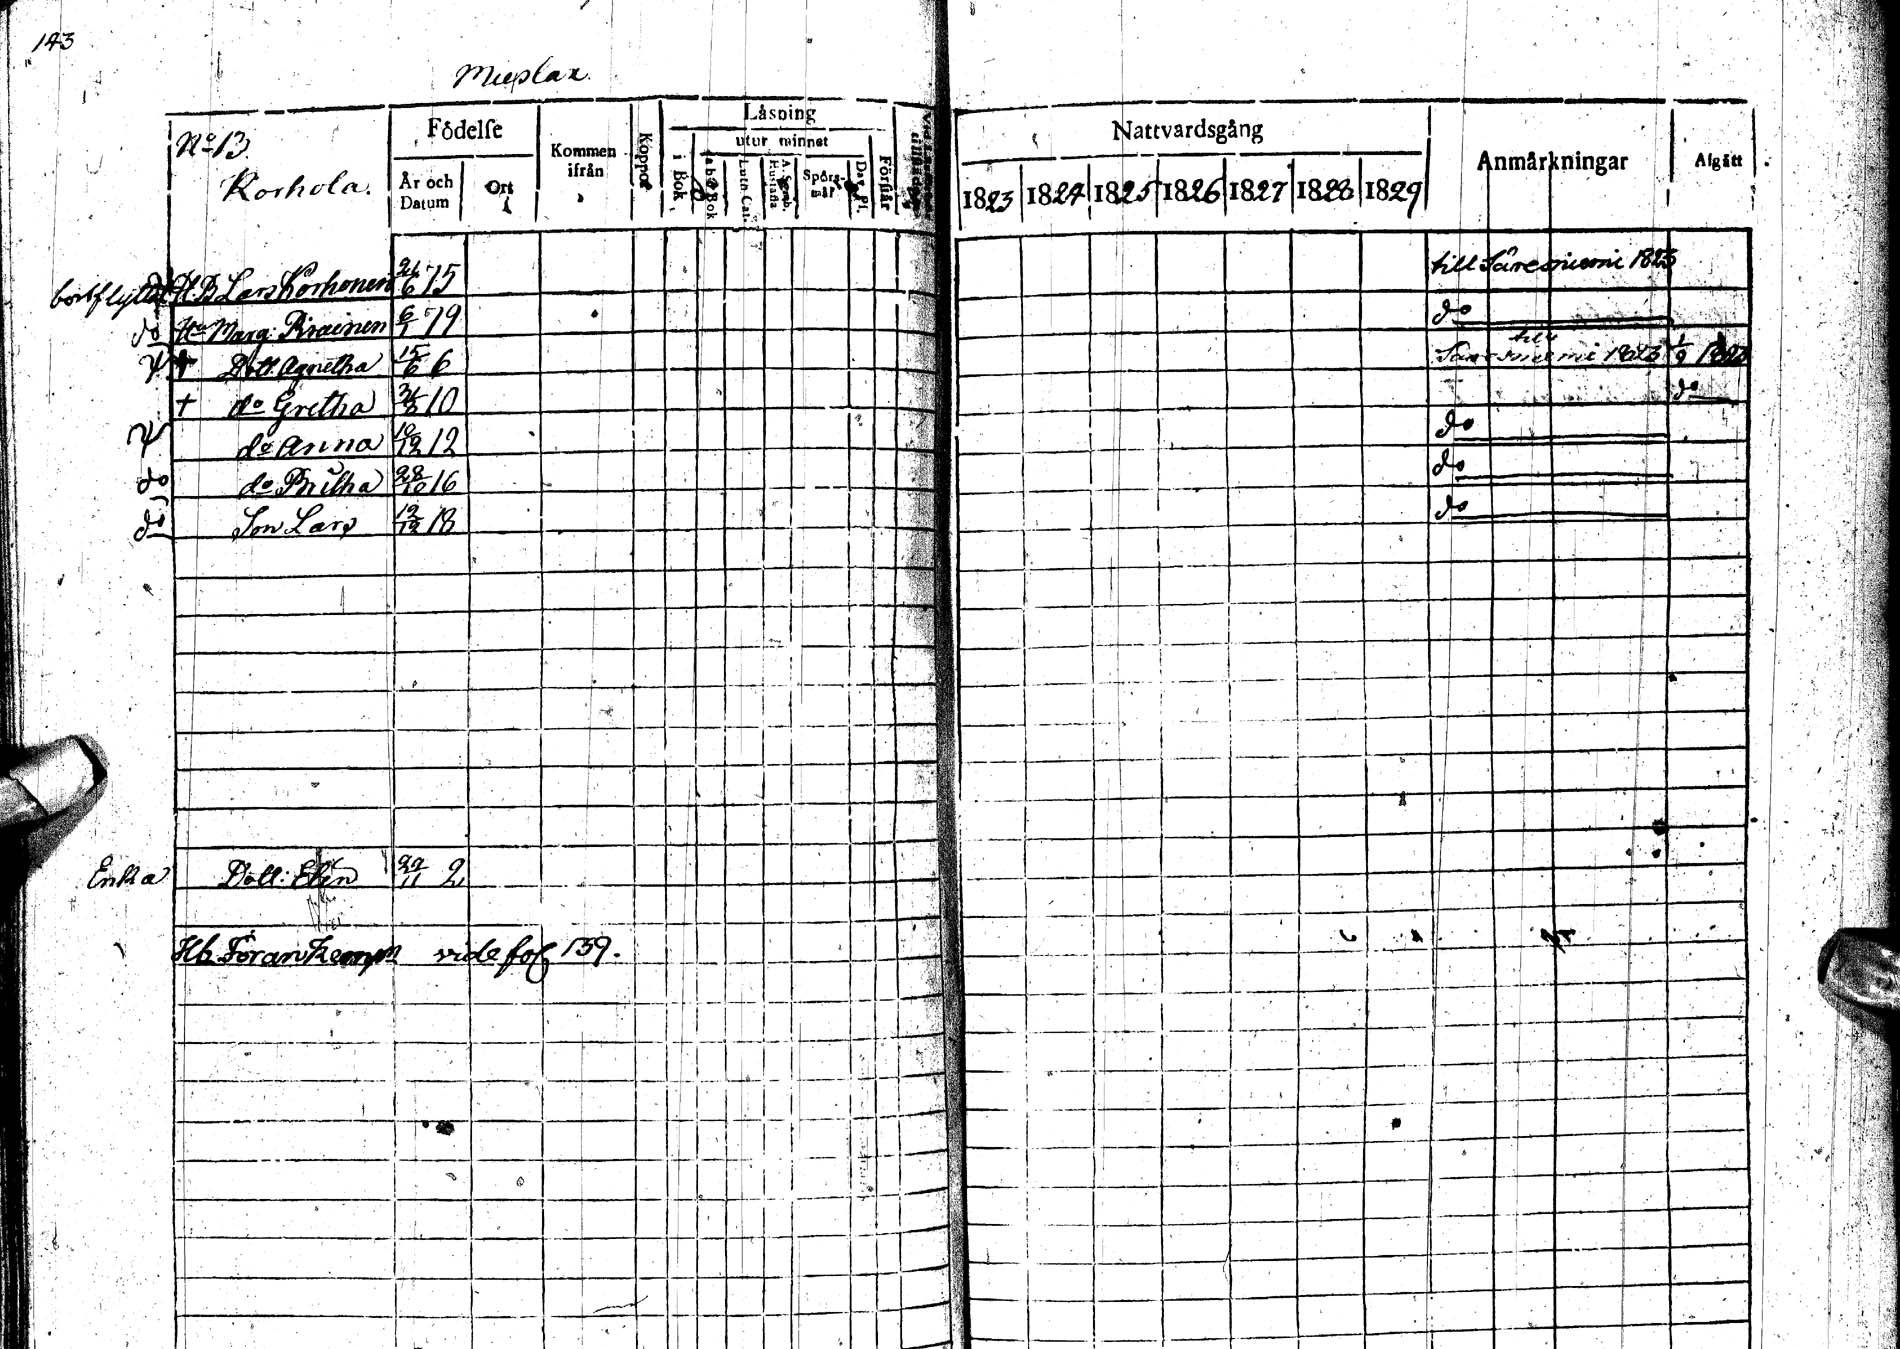 143
Muplax.
No 13.
Korhola.
Födelse
År och Datum
Ort
Kommen ifrån
Koppor
Läsning
i Bok
utur minnet
a b c Bok
Luth. Cat.
Spörsmål
Förstår
Nattvardsgång
1823 1824 1825 1826 1827 1828 1829
Anmärkningar
Afgått
bortflyttat H.B. Lars Korhonen 24/6 75 till Säresniemi 1823
do Hu Marg: Piirainen 6/1 79 do
† Dott. Agnetha 15/6 6 till Säresniemi 1823 1/9 1823
† do Gretha 24/8 10 do
do Anna 10/12 12 do
do do Britha 28/10 16 do
do Son Lars 12/12 18 do
Enka Dott: Elin 22/11 2
Hb. Föran Kemp vide fol 139.